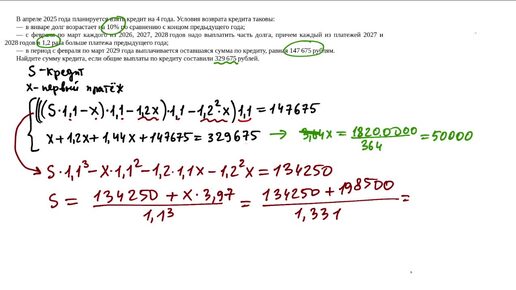 В апреле 2025 года планируется взять кредит на 4 года. Условия возврата кредита таковы:
— в январе долг возрастает на 10% по сравнению с концом предыдущего года;
— с февраля по март каждого из 2026, 2027, 2028 годов надо выплатить часть долга, причем каждый из платежей 2027 и
2028 годов в 1,2 раза больше платежа предыдущего года;
— в период с февраля по март 2029 года выплачивается оставшаяся сумма по кредиту, равная 147 675 рублям.
Найдите сумму кредита, если общие выплаты по кредиту составили 329 675 рублей.
S - кредит
x - первый платёж
(((S·1,1-x)·1,1-1,2x)·1,1-1,2²x)1,1=147675
x+1,2x+1,44x+147675=329675 → 3,64x = 18200000/364 = 50000
S·1,1³-x·1,1²-1,2·1,1x-1,2²x=134250
S = (134250+x·3,97)/1,1³ = (134250+198500)/1,331 =